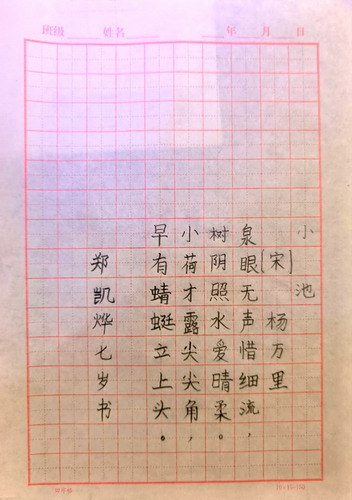 班级 姓名 年 月 日
小池
[宋]杨万里
泉眼无声惜细流,
树阴照水爱晴柔。
小荷才露尖尖角,
早有蜻蜓立上头。
郑凯烨七岁书